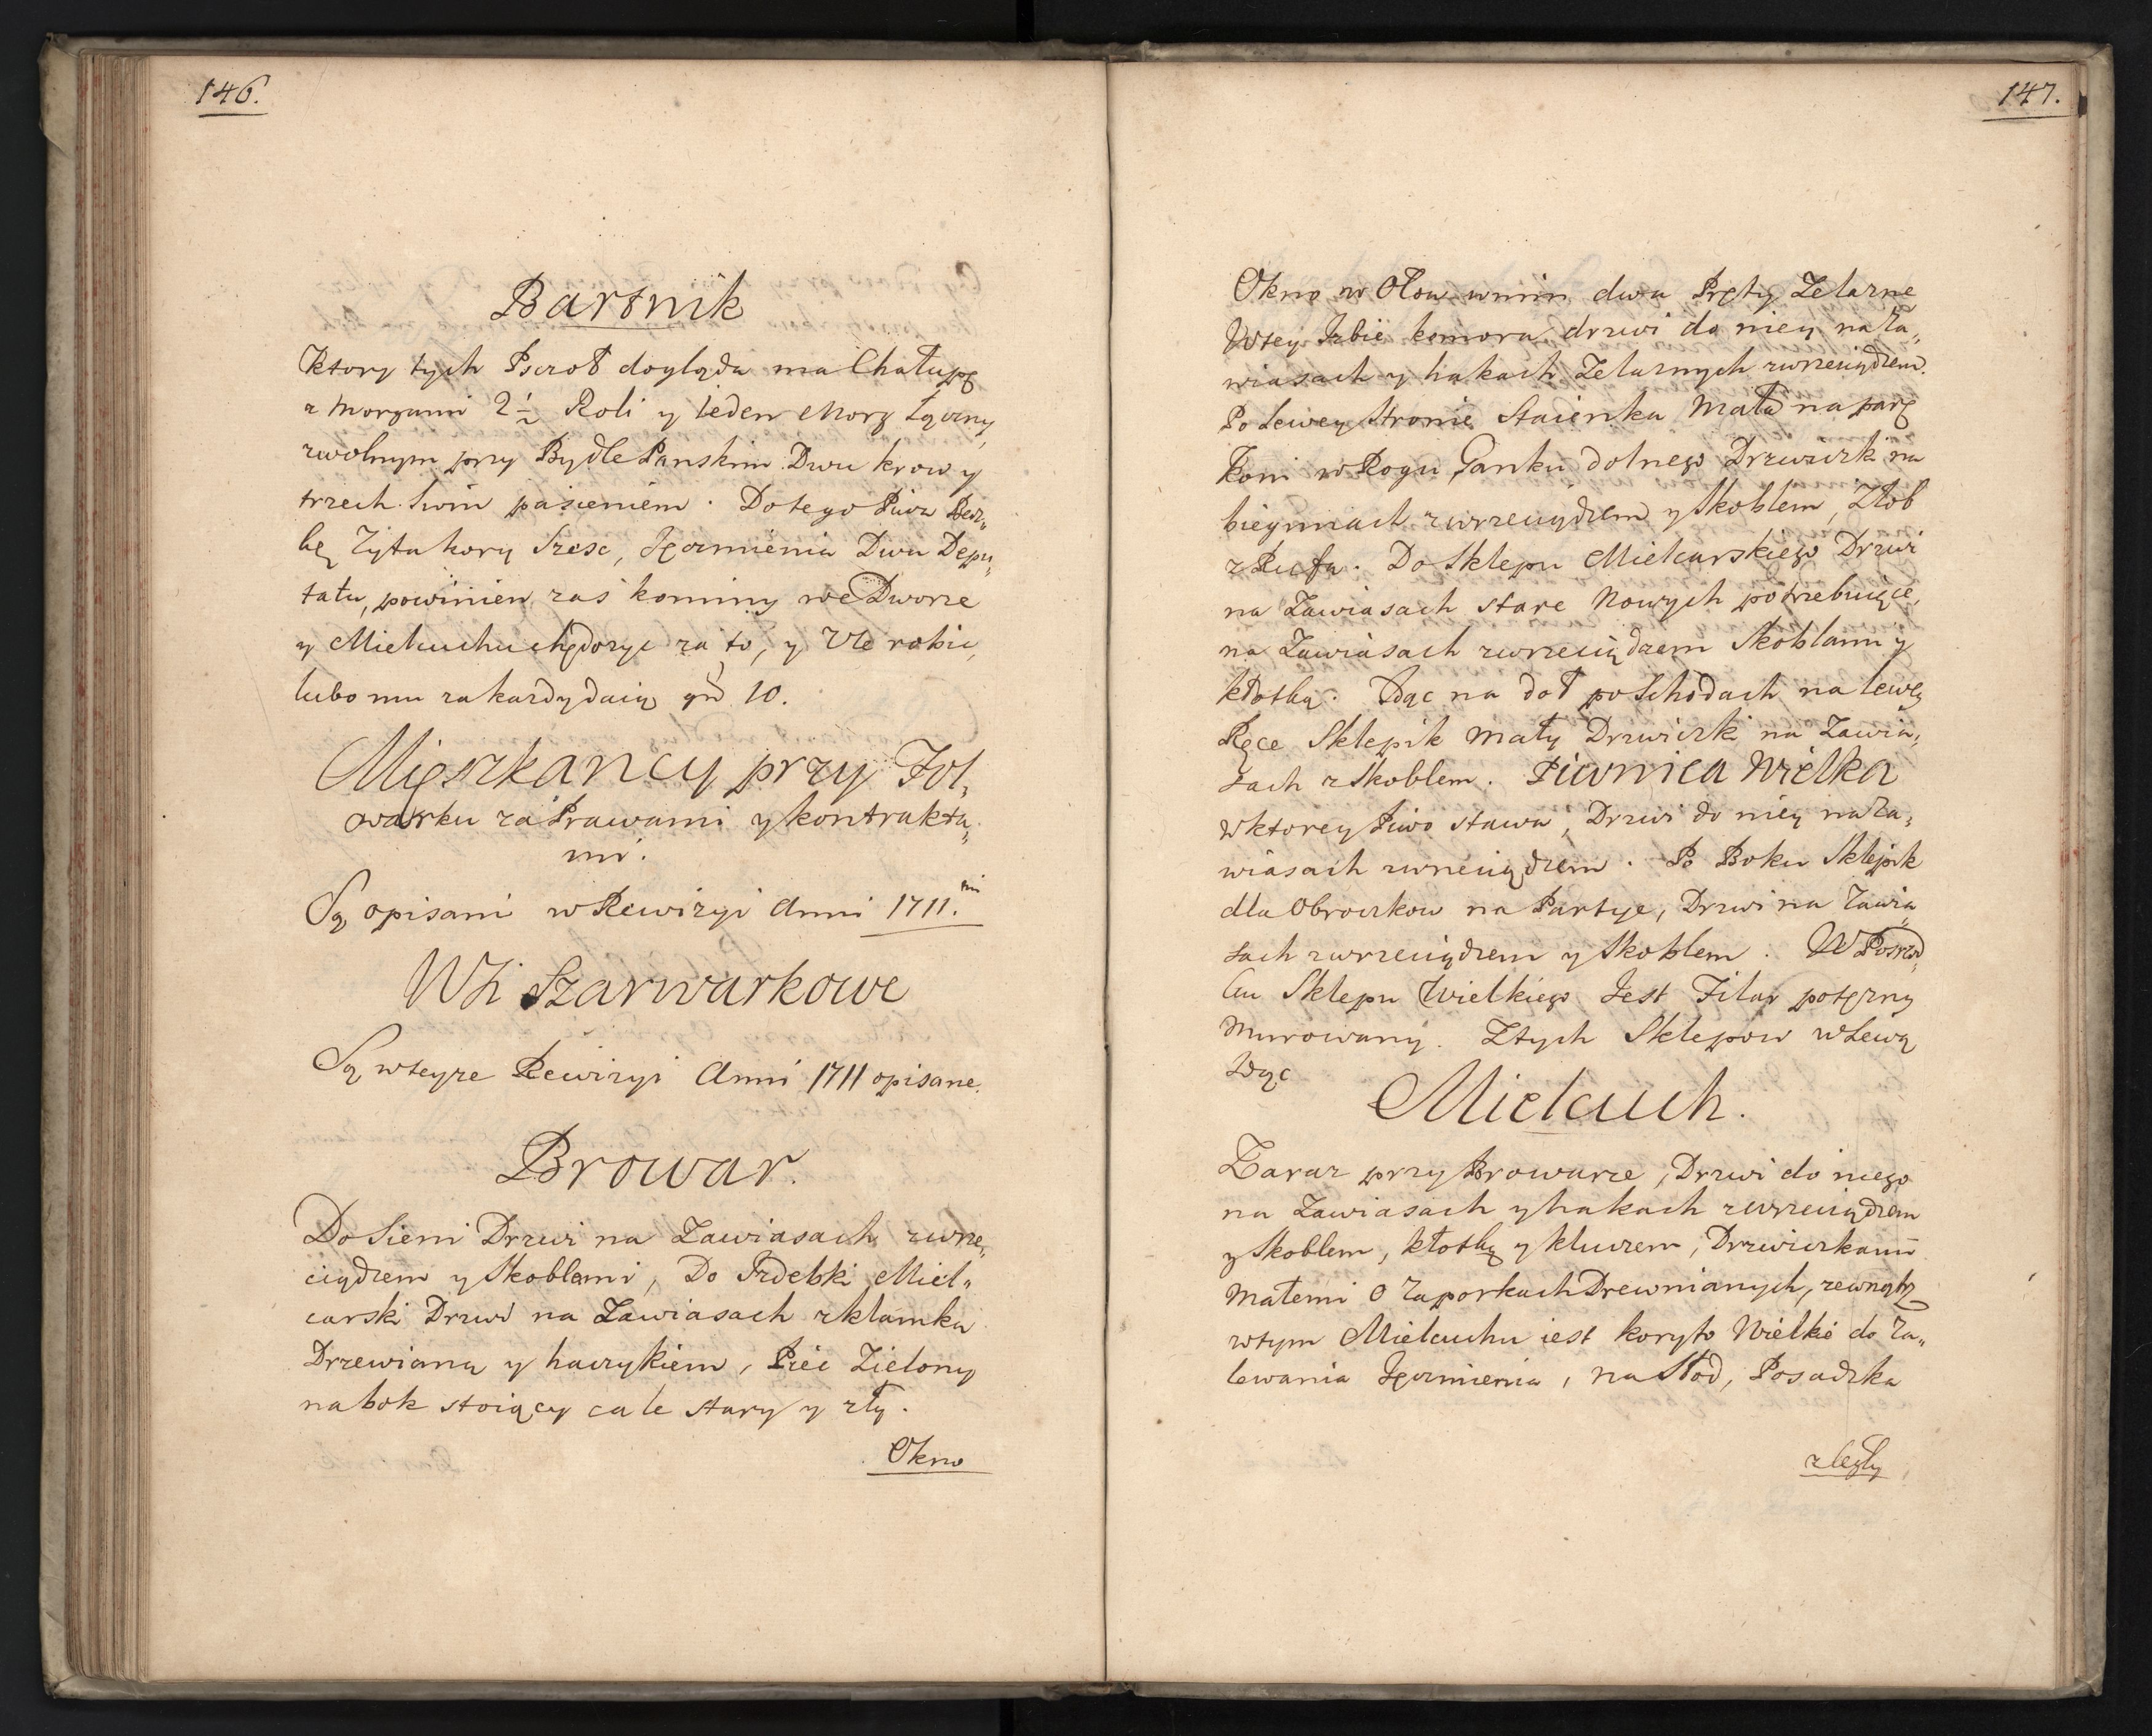 146.
Bartnik
Ktory tych Psczoł dogląda ma Chałupę
z Morgami 2½ Roli y ieden Morg Łączny
zwolnym przy Bydle Panskim Dwu krow y
trzech Swin pasieniem. Dotego Piwa Becz„
kę Zyta kory Szesc, Jęczmienia Dwu Depu„
tatu, powinien zas kominy we Dworze
y Mielcuchu chędozyc za to, y Ule robic,
lubo mu za kazdy daią gr 10.
Mięszkancy przy Fol„
warku za Prawami y kontrakta„
mi.
Są opisani w Rewizyi Anni 1711.mi
Wsi Szarwarkowe
Są wteyze Rewizyi Anni 1711 opisane.
Browar.
Do Sieni Drzwi na Zawiasach zwrze„
ciądzem y Skoblami, Do Izdebki Miel„
carski Drzwi na Zawiasach zklamką
Drzewianą y haczykiem, Piec Zielony
nabok stoiący cale stary y zły.
Okno
147.
Okno w Ołow wnim dwa Pręty Zelazne
Wtey Izbie komora drzwi do niey naZa„
wiasach y hakach Zelaznych zwrzeciądzem.
Po Lewey stronie Staienka Mała na parę
Koni w Rogu Ganku dolnego Drzwiczki na
biegunach zwrzeciądzem y Skoblem, Złob
. Do Sklepu Mielcarskiego Drzwi
na Zawiasach stare Nowych potrzebuiące,
na Zawiasach zwrzeciądzem Skoblami y
kłotką. Idąc na doł po Schodach na lewey
Ręce Sklepik mały Drzwiczki na Zawia„
sach z Skoblem. Piwnica Wielka
wktorey Piwo stawa, Drzwi do niey naZa„
wiasach zwrzeciądzem. Po Boku Sklepik
dla Obroczkow na Partye, Drzwi na Zawia„
sach zwrzeciądzem y Skoblem. W Posrzod„
ku Sklepu Wielkiego Jest Filar potęzny
Murowany. Ztych Sklepow wLewą
Idąc
Mielcuch.
Zaraz przy Browarze, Drzwi do niego
na Zawiasach y hakach zwrzeciądzem
y Skoblem, kłotką y kluczem, Drzwiczkami
Małemi o Zaporkach Drewnianych, zewnątrz
wtym Mielcuchu iest koryto Wielkie do Za„
lewania Jęczmienia, na Słod, Posadzka
zCegły